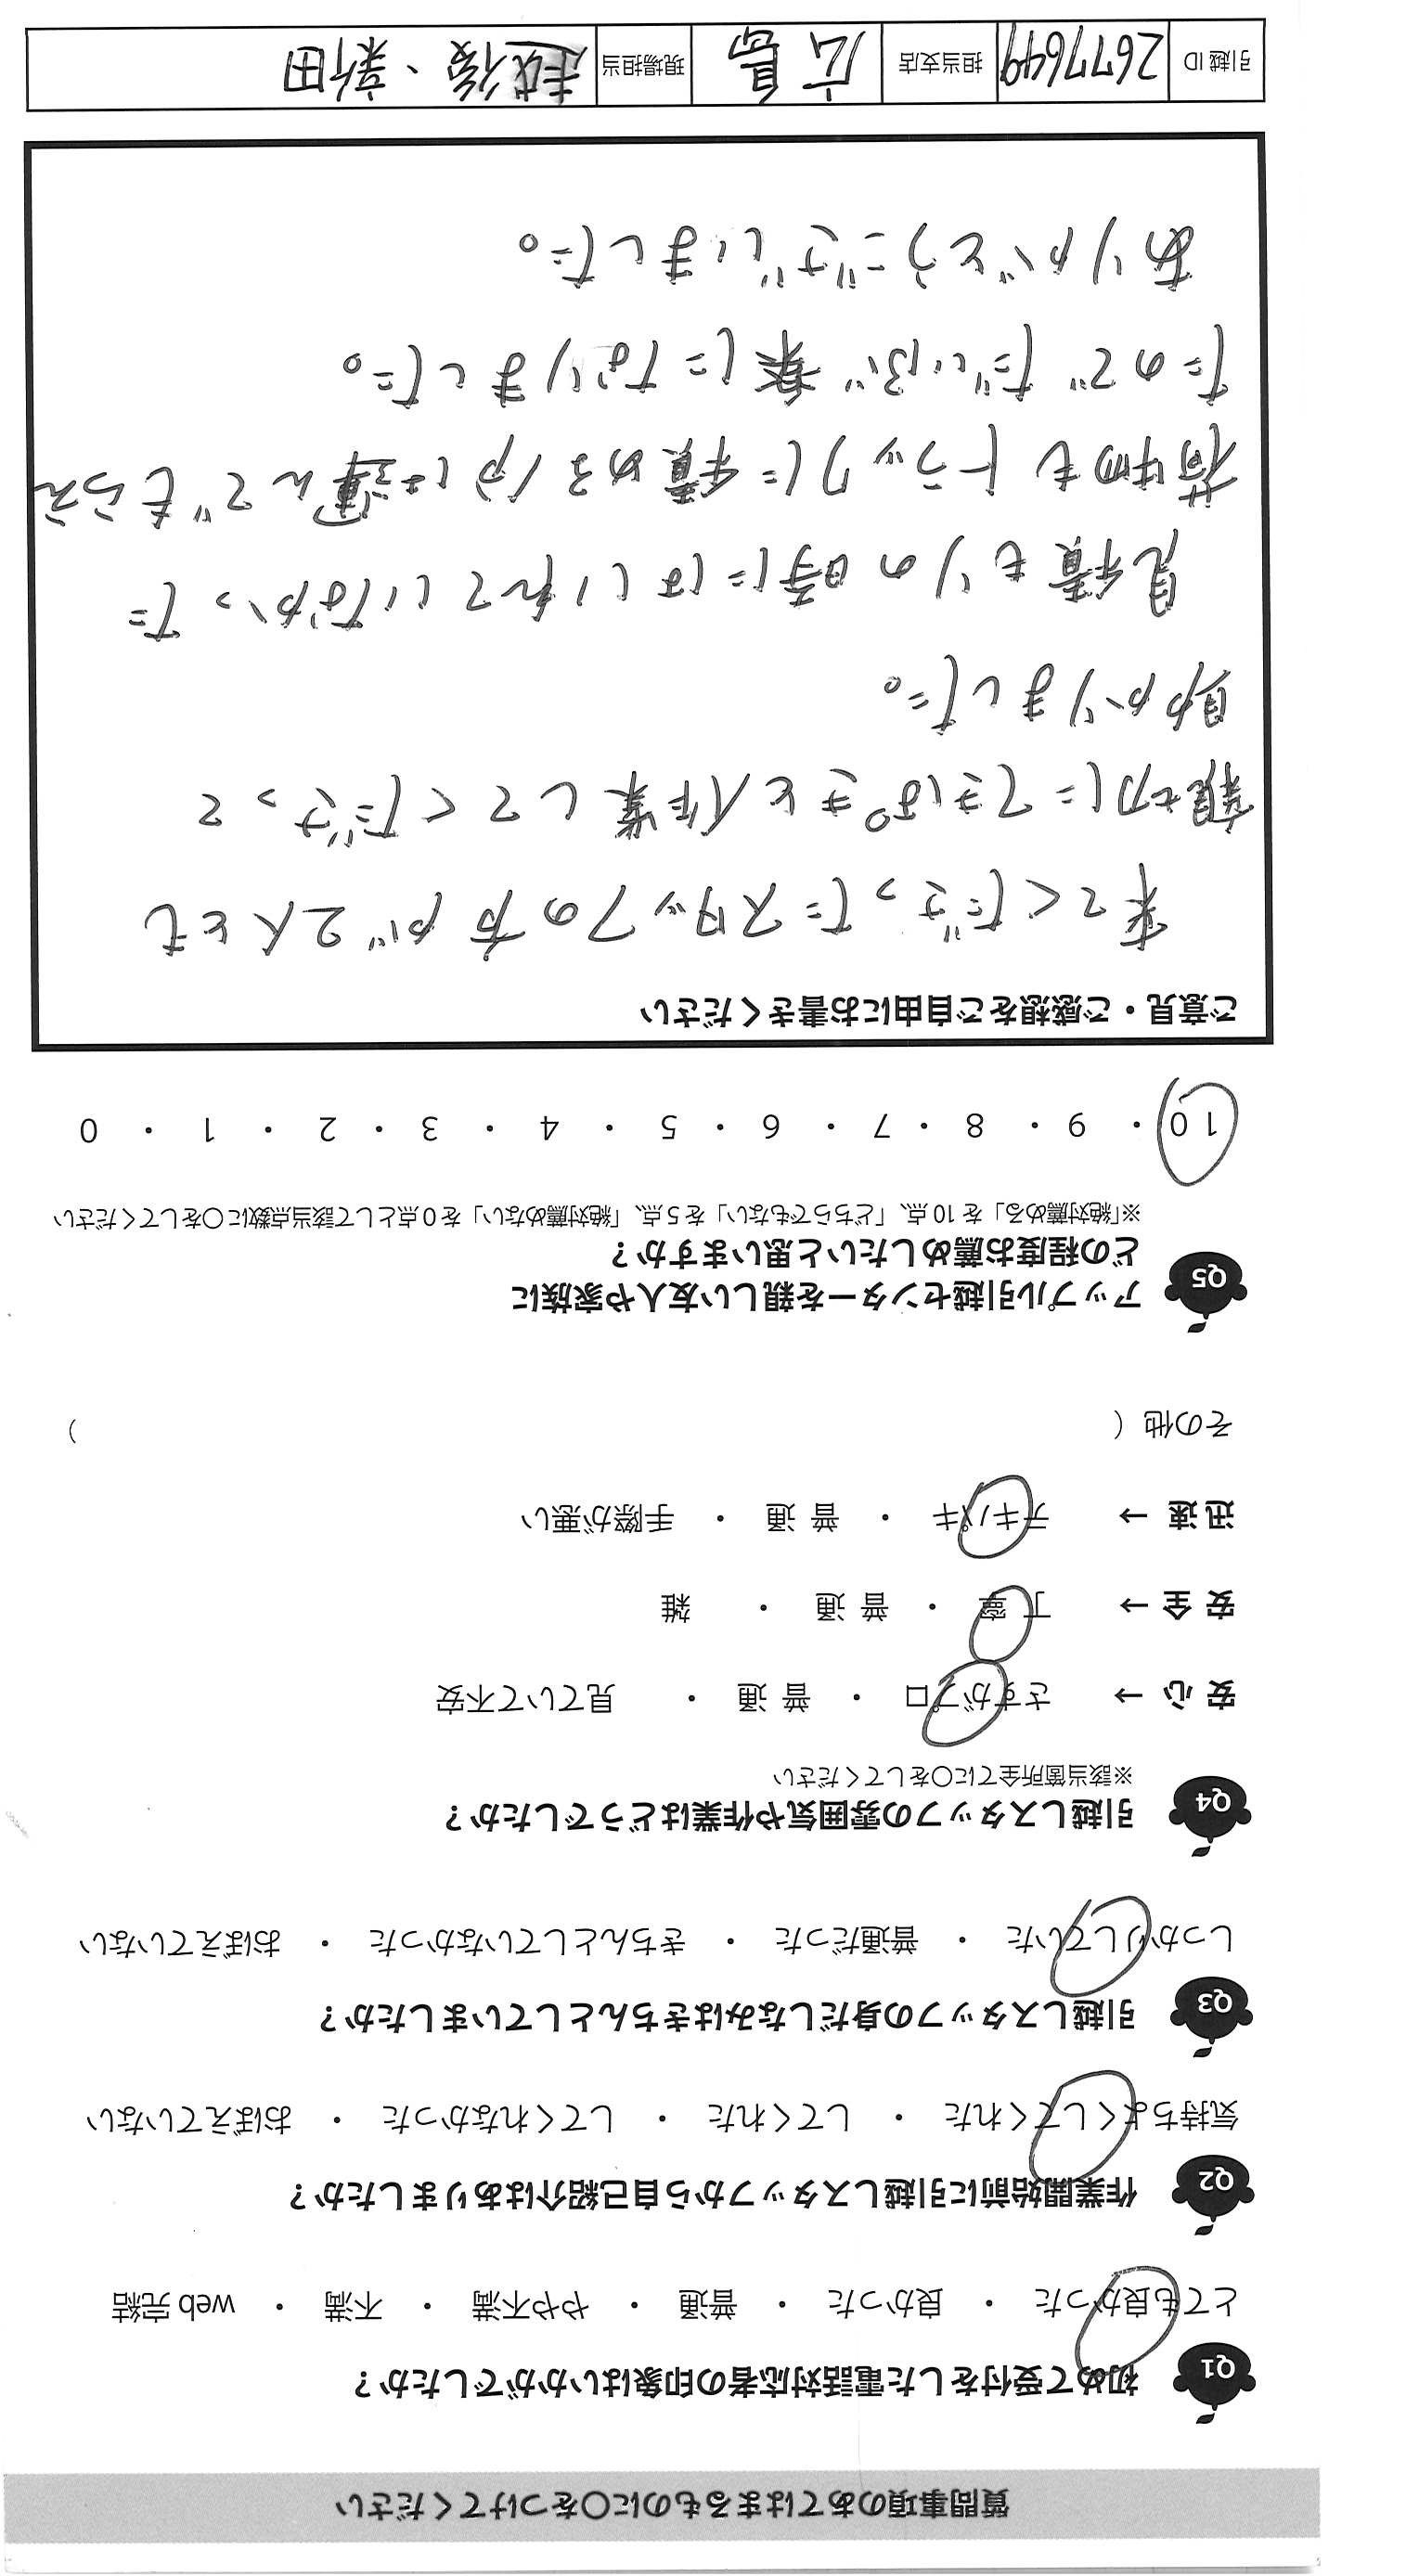 質問事項のあてはまるものに○をつけてください
Q1 初めて受付をした電話対応者の印象はいかがでしたか？
とても良かった ・ 良かった ・ 普通 ・ やや不満 ・ 不満 ・ web 完結
Q2 作業開始前に引越しスタッフから自己紹介はありましたか？
気持ちよくしてくれた ・ してくれた ・ してくれなかった ・ おぼえていない
Q3 引越しスタッフの身だしなみはきちんとしていましたか？
しっかりしていた ・ 普通だった ・ きちんとしていなかった ・ おぼえていない
Q4 引越しスタッフの雰囲気や作業はどうでしたか？
※該当箇所全てに○をしてください
安 心 → さすがプロ ・ 普 通 ・ 見ていて不安
安 全 → 丁 寧 ・ 普 通 ・ 雑
迅 速 → テキパキ ・ 普 通 ・ 手際が悪い
その他（ ）
Q5 アップル引越センターを親しい友人や家族に
どの程度お薦めしたいと思いますか？
※「絶対薦める」を 10 点、「どちらでもない」を 5 点、「絶対薦めない」を 0 点として該当点数に○をしてください
10 ・ 9 ・ 8 ・ 7 ・ 6 ・ 5 ・ 4 ・ 3 ・ 2 ・ 1 ・ 0
ご意見・ご感想をご自由にお書きください
来てくださったスタッフの方が2人とも
親切にてきぱきと作業してくださって
助かりました。
見積もりの時にはいれていなかった
荷物もトラックに積める分は運んでもらえ
たのでだいぶ楽になりました。
ありがとうございました。
引越 ID 2677649 担当支店 広島 現場担当 越後、新田